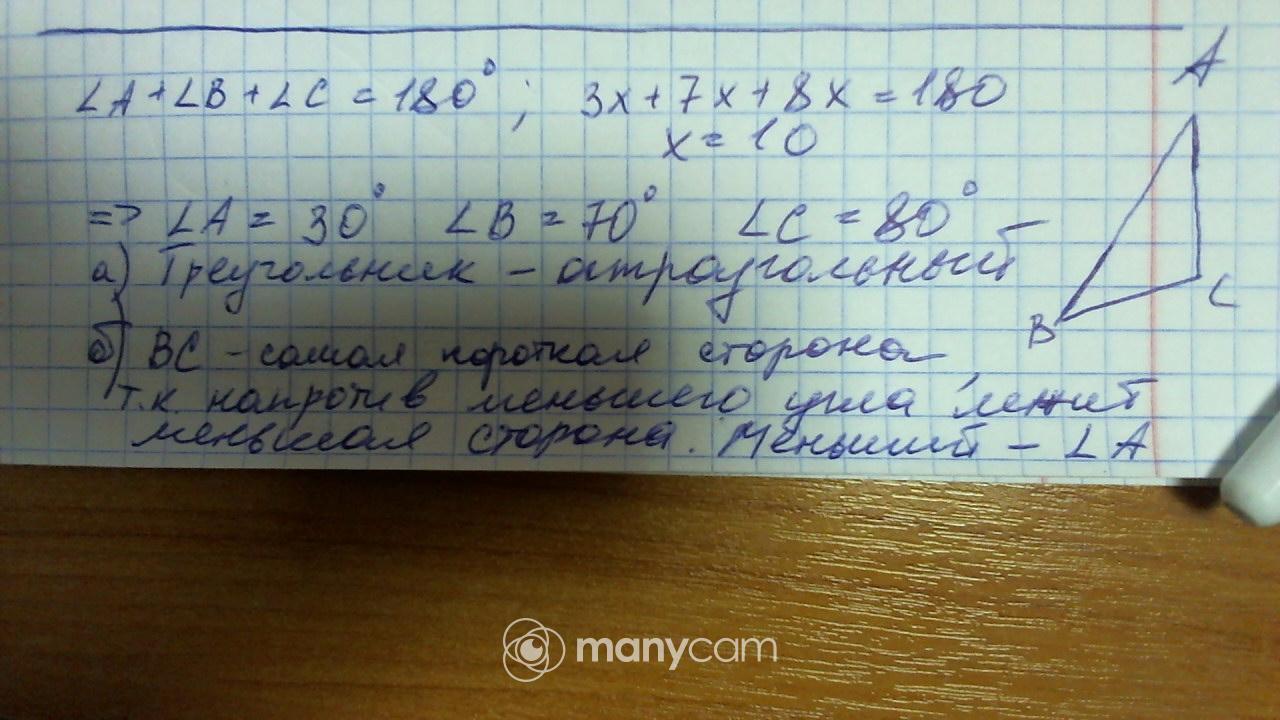 ∠A+∠B+∠C=180°; 3x+7x+8x=180
x=10
=> ∠A=30° ∠B=70° ∠C=80° –
а) Треугольник – остроугольный
б) BC – самая короткая сторона,
т.к. напротив меньшего угла лежит
меньшая сторона. Меньший – ∠A
A
B
C
manycam